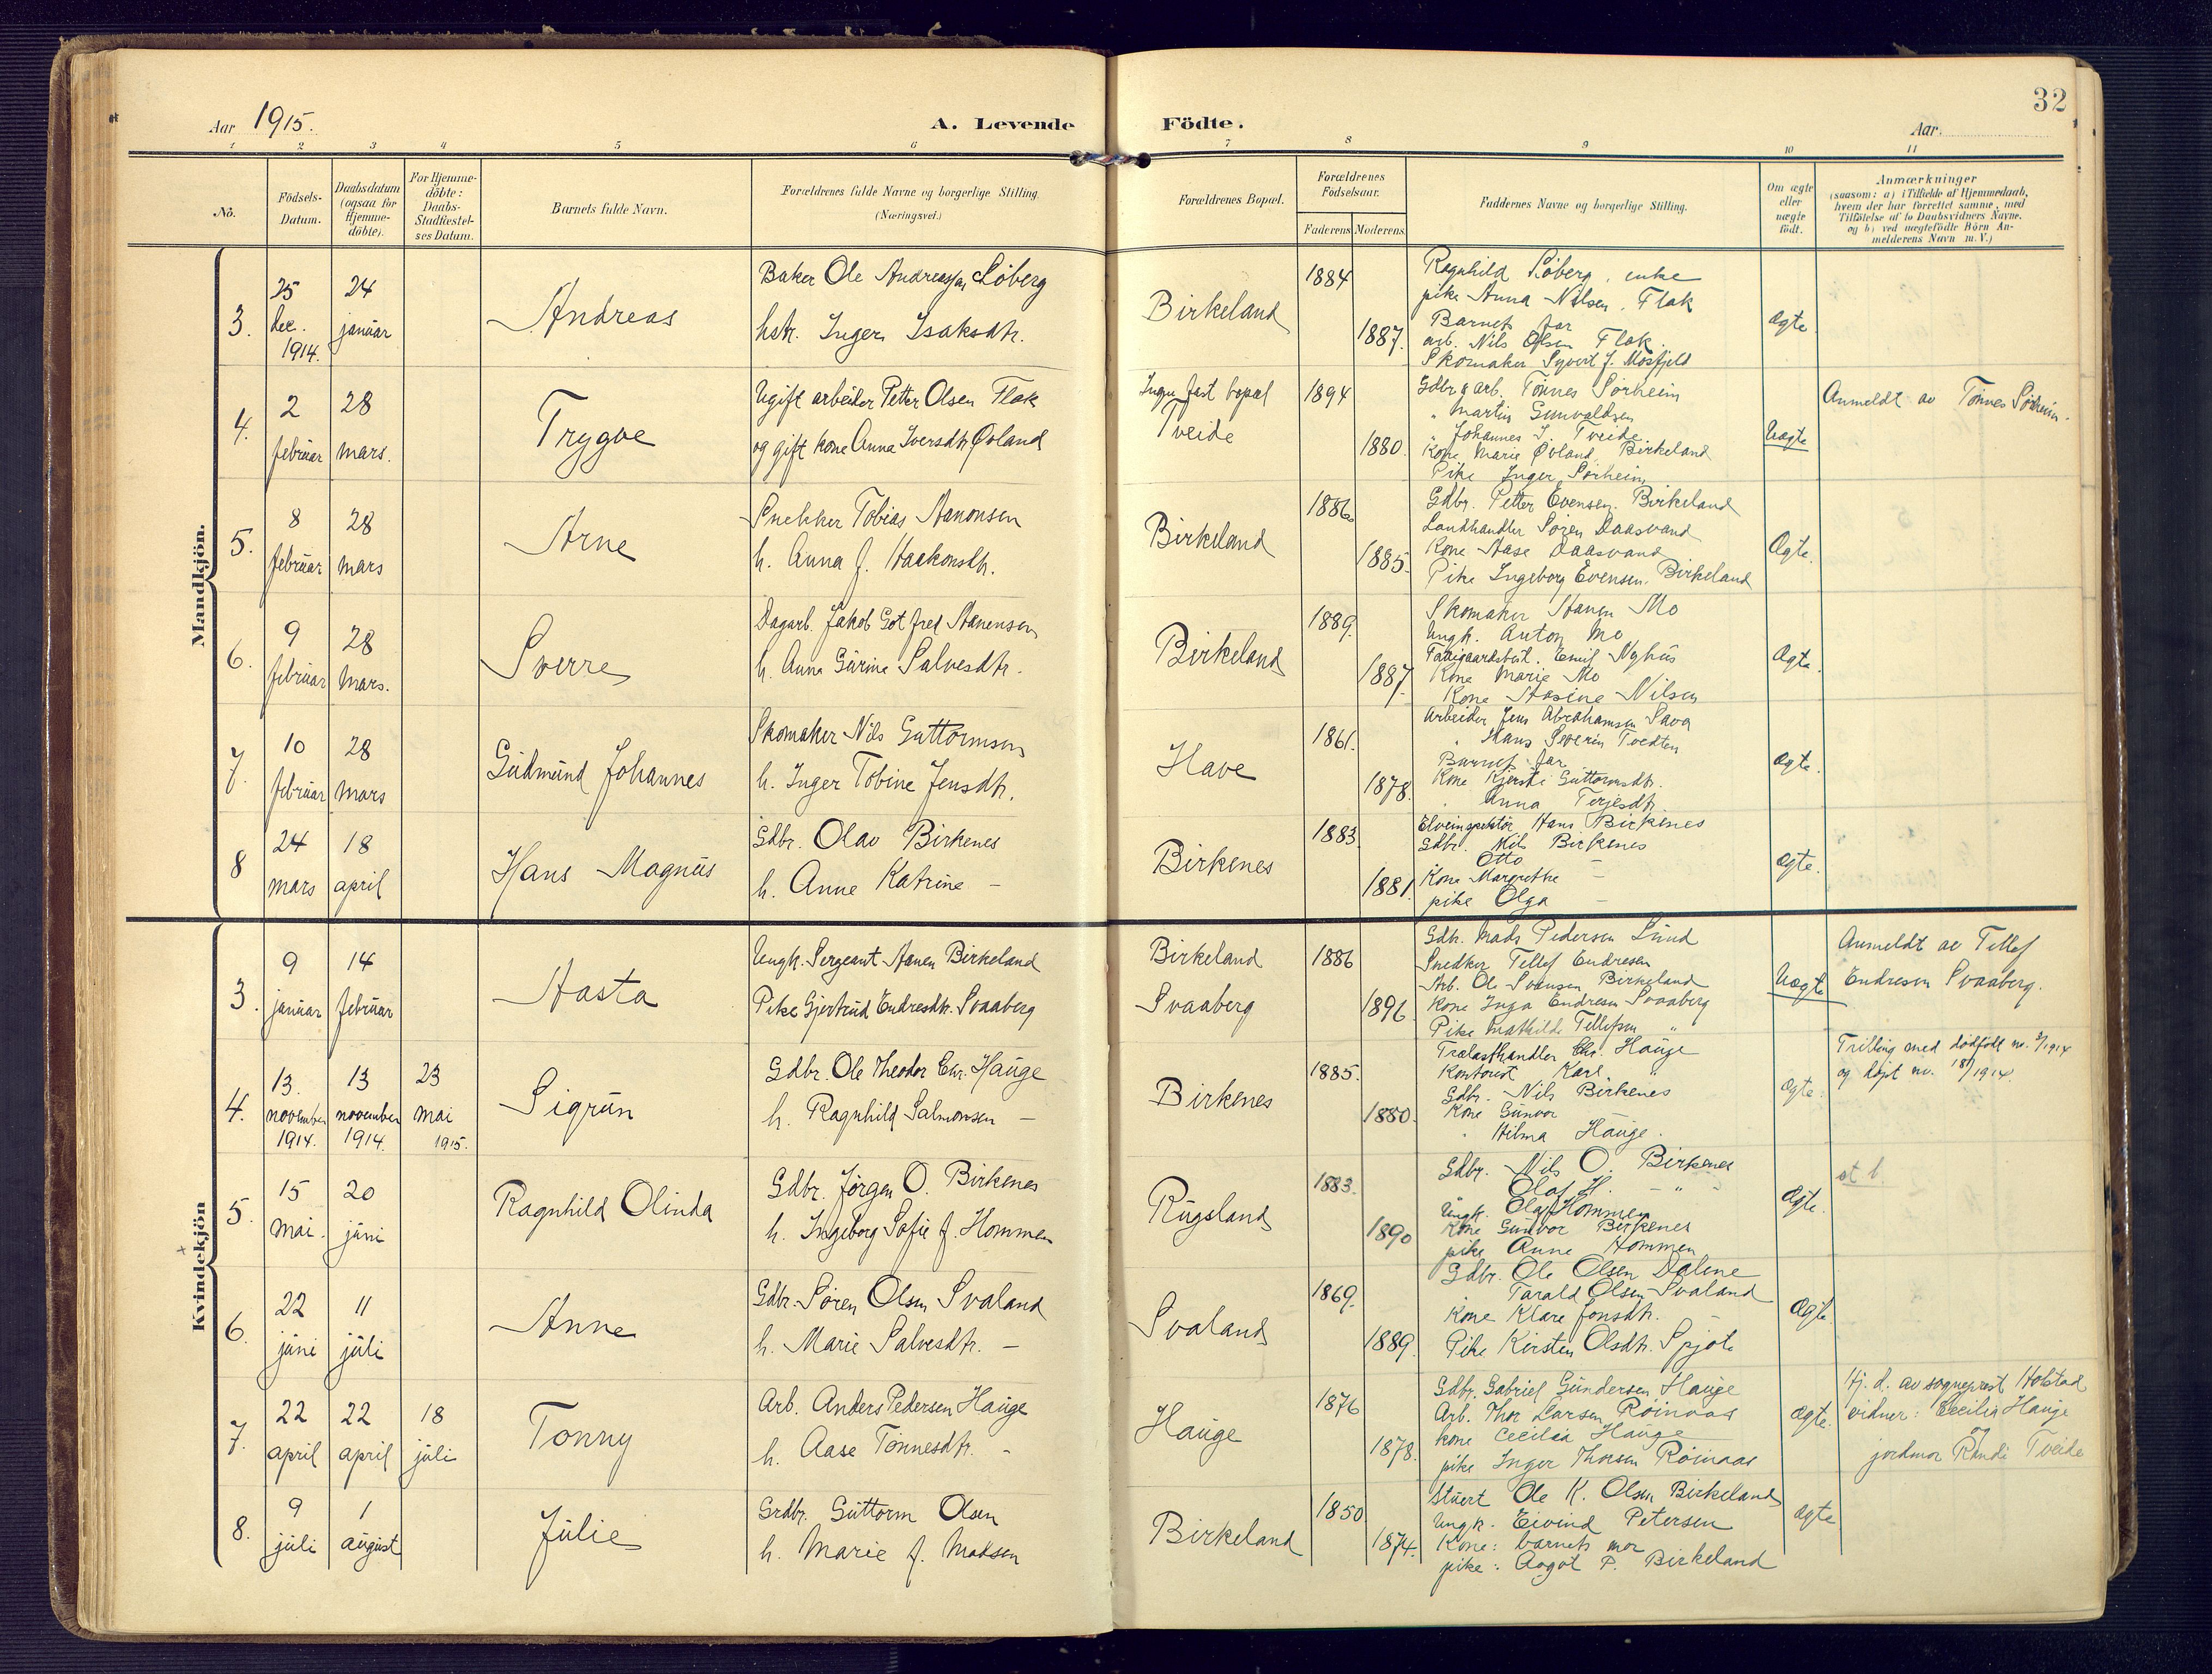 32
Aar 1915.
A. Levende Födte.
Aar
1 2 3 4 5 6 7 8 9 10 11
No.
Födsels-Datum.
Daabsdatum (ogsaa for Hjemme-döbte).
For Hjemme-döbte: Daabs-Stadfestel-ses Datum.
Barnets fulde Navn.
Forældrenes fulde Navne og borgerlige Stilling. (Næringsvei.)
Forældrenes Bopæl.
Forældrenes Födselsaar.
Faderens Moderens
Faddernes Navne og borgerlige Stilling.
Om ægte eller uægte födt.
Anmærkninger
(saasom: a) i Tilfælde af Hjemmedaab, hvem der har forrettet samme, med Tilföielse af to Daabsvidners Navne, og b) ved uægtefödte Börn An-melderens Navn m. V.)
Mandkjön.
3.
25 dec. 1914.
24 januar
Andreas
Baker Ole Andreassen Løberg
hstr. Inger Isaksdtr.
Birkeland
1884
1887.
Ragnhild Løberg, enke
pike Anna Nilsen, Flak
Barnets far
arb. Nils Olsen Flak.
Skomaker Syvert J. Mosfjeld
Ægte.
4.
2 februar
28 mars.
Trygve
Ugift arbeider Petter Olsen Flak
og gift kone Anna Iversdtr. Øvland
Ingen fast bopæl
Tveide
1894
1880.
Gdbr & arb. Tønnes Sørheim
" Martin Gunvaldsen
" Johannes J. Tveide
Kone Marie Øvland, Birkeland
Pike Inger Sørheim
Uægte
Anmeldt av Tønnes Sørheim.
5.
8 februar
28 mars
Arne
Snekker Tobias Aanonsen
h. Anna f. Haakonsdtr.
Birkeland
1886.
1885.
Gdbr. Petter Evensen, Birkeland
Landhandler Søren Daasvand
Kone Aase Daasvand
Pike Ingeborg Evensen, Birkeland
Ægte.
6.
9 februar
28 mars.
Sverre
Dagarb. Jakob Gotfred Aanensen
h. Anna Gurine Salvesdtr.
Birkeland
1889.
1887.
Skomaker Aanen Mo
Ungk. Anton Mo
Emil Nyhus
Kone Marie Mo
Kone Nilsen
Ægte.
7.
10 februar
28 mars
Gudmund Johannes
Skomaker Nils Guttormsen
h. Inger Tobine Jensdtr.
Have
1861.
1878.
Arbeider Jens Abrahamsen
" Hans Severin Tvedten
Barnets far
Kone Kjersti Guttormsdtr.
" Anna Terjesdtr.
Ægte.
8
24 mars
18 april
Hans Magnus
Gdbr. Olav Birkenes
h. Anne Katrine –
Birkenes
1883.
1881.
Elveinspektør Hans Birkenes
Gdbr. Nils Birkenes
Otto –
Kone Margrethe –
pike Olga –
Ægte.
Kvindekjön
3.
9 januar
14 februar
Aasta
Ungk. Sergeant Aanen Birkeland
Pike Gjertrud Endresdtr. Svaaberg
Birkeland
Svaaberg
1886
1896.
Gdbr. Mads Pedersen Lund
Snedker Tellef Endresen
Arb. Ole Svensen Birkeland
Kone Inga Endresen Svaaberg
Pike Mathilde Tellefsen "
Uægte
Anmeldt av Tellef
Endresen Svaaberg.
4.
13. november 1914.
13 november 1914.
23 mai 1915.
Sigrun
Gdbr. Ole Theodor Chr. Hauge
h. Ragnhild Salmonsen –
Birkenes
1885.
1880.
Trælasthandler Chr. Hauge
Kontorist Karl "
Gdbr. Nils Birkenes
Kone Gunvor
" Hilma Hauge.
Ægte.
Trilling med dødfødt no. 2/1914
og døpt no. 18/1914.
5.
15 mai.
20 juni
Ragnhild Olinda
Gdbr. Jørgen O. Birkenes
h. Ingeborg Sofie f. Hommen
Rugsland
1883.
1890
Gdbr. Nils O. Birkenes
Olaf H. – " –
Ungk. Olaf Hommen
Kone Gunvor Birkenes
pike Anne Hommen
Ægte.
st b.
6.
22 juni
11 juli
Anne
Gdbr. Søren Olsen Svaland
h. Marie Salvesdtr. –
Svaland
1869.
1889.
Gdbr. Ole Olsen Dalene
" Tarald Olsen Svaland
Kone Klare Jonsdtr.
Pike Kirsten Olsdtr. Spjote
Ægte.
7.
22 april
22 april
18 juli
Tonny
Arb. Anders Pedersen Hauge
h. Aase Tønnesdtr. –
Hauge
1876
1878.
Gdbr. Gabriel Gundersen Hauge
Arb. Thor Larsen Røinaas
kone Cecilia Hauge
pike Inger Thorsen Røinaas
Ægte.
Hj. d. av sogneprest Holstad
vidner: Cecilia Hauge
og
jordmor Randi Tveide
8.
9 juli
1 august
Julie
Grdbr. Guttorm Olsen
h. Marie f. Madsen
Birkeland
1850
1874.
Stuert Ole K. Olsen Birkeland
Ungk. Eivind Petersen
Kone: barnets mor
pike: Aagot P. Birkeland
Ægte